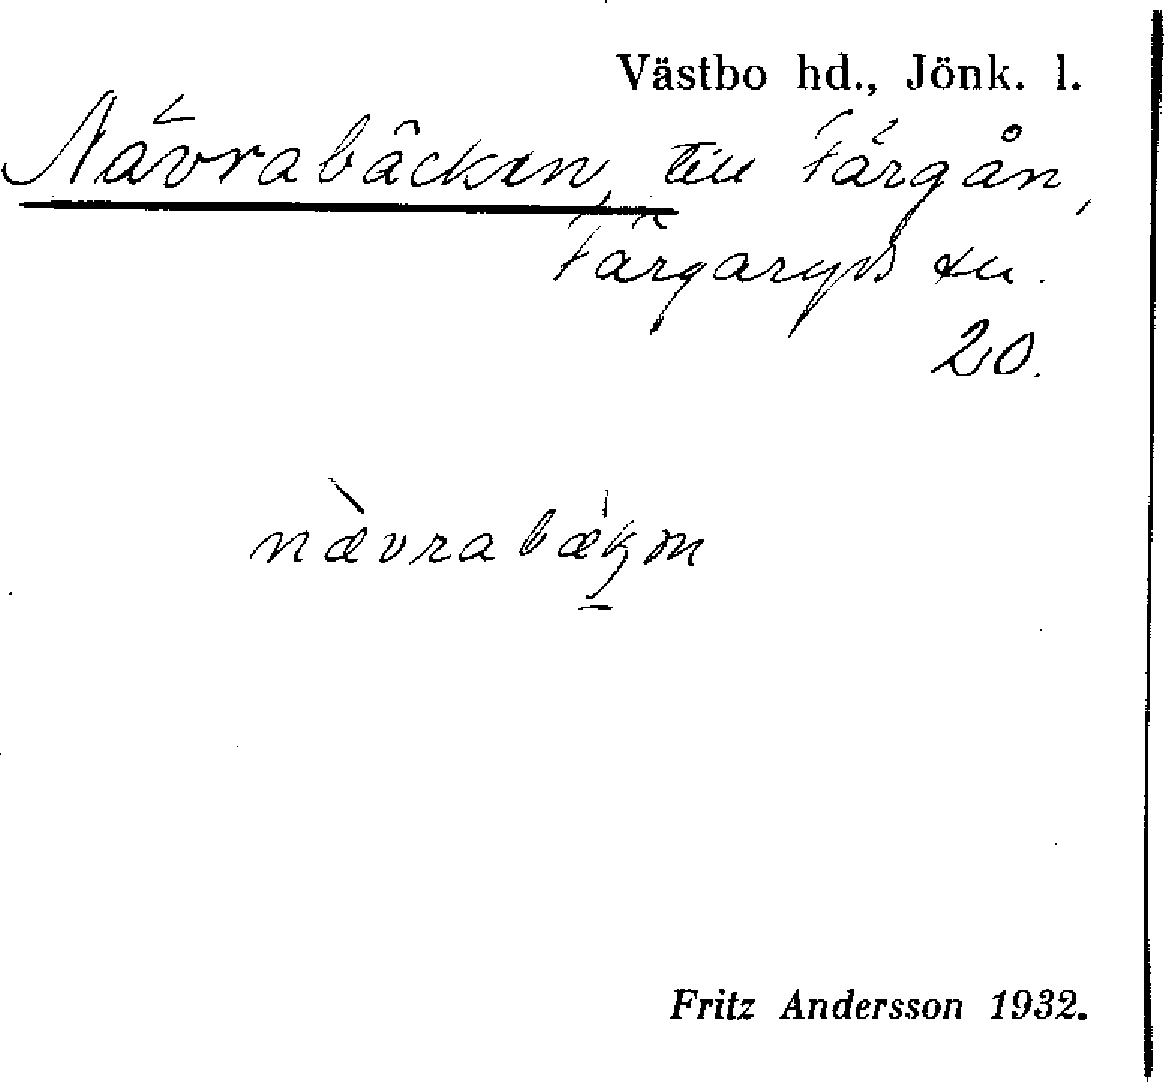 Västbo hd., Jönk. l.
Nävrabäcken, till Färgån,
Färgaryds sn.
20.
nævrabækən
Fritz Andersson 1932.